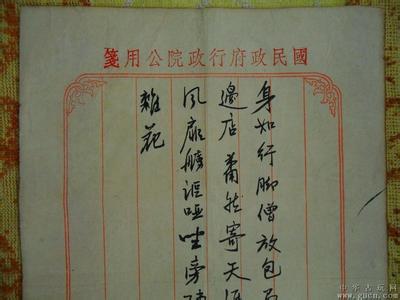 國民政府行政院公用箋
身如行腳僧放包
邊店蕭然寄天
風扉艣謳啞坐旁
雜花
中华古玩网
www.gucn.com